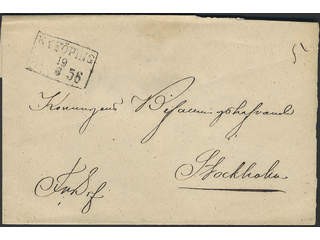 NYKÖPING
19
56
Konungens Befallningshafvande
Stockholm